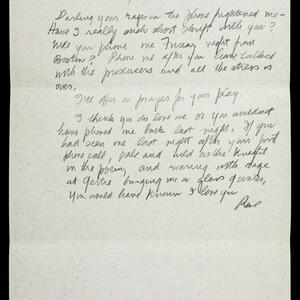 Darling your rages on the phone frightened me—
Have I really such short shrift with you?
Will you phone me Friday night from
Boston? Phone me after you have talked
with the producers and all the stress is
over.
I'll offer a prayer for your play
I think you do love me or you wouldn't
have phoned me back last night. If you
had seen me last night after your first
phone call, pale and wild as the Knight
in the poem, and warring with
at bringing me a glass water,
You would have known I love you